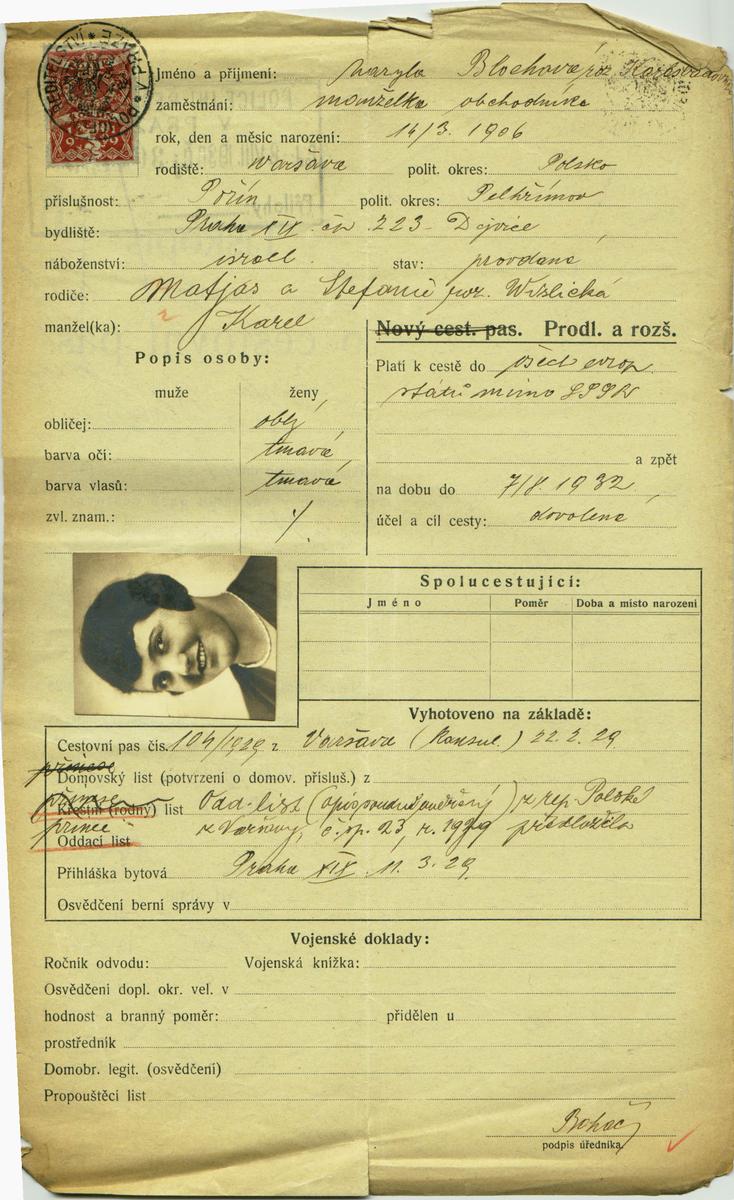 ŘEDITELSTVÍ * V PRAZE * PO
Jméno a příjmení: Maryla Blochová roz.
zaměstnání: manželka obchodníka
rok, den a měsíc narození: 14/3. 1906
rodiště: Waršava polit. okres: Polsko
příslušnost: Pořín polit. okres: Pelhřimov
bydliště: Praha XIX čp. 223 Dejvice
náboženství: israel. stav: provdaná
rodiče: Matjas a Stefanie roz. Wizlická
manžel(ka): Karel
Nový cest. pas. Prodl. a rozš.
Popis osoby:
muže ženy
obličej: oblý
barva očí: tmavé
barva vlasů: tmavé
zvl. znam.: ·/.
Platí k cestě do všech evrop.
států mimo SSSR
a zpět
na dobu do 7/8. 1932
účel a cíl cesty: dovolená
Spolucestující:
Jméno Poměr Doba a místo narození
Vyhotoveno na základě:
Cestovní pas čís. 104/1929 z Varšava (Konsul.) 22.2.29
přinese
Domovský list (potvrzení o domov. přísluš.) z
přinese
Křestní (rodný) list Odd. list (opis soudně ověřený) z rep. Polské
z Varšavy, č. sp. 23, r. 1929 předložila
Oddací list
Přihláška bytová Praha XIX 11. 3. 29
Osvědčení berní správy v
Vojenské doklady:
Ročník odvodu: Vojenská knížka:
Osvědčení dopl. okr. vel. v
hodnost a branný poměr: přidělen u
prostředník
Domobr. legit. (osvědčení)
Propouštěcí list
Boháč
podpis úředníka.